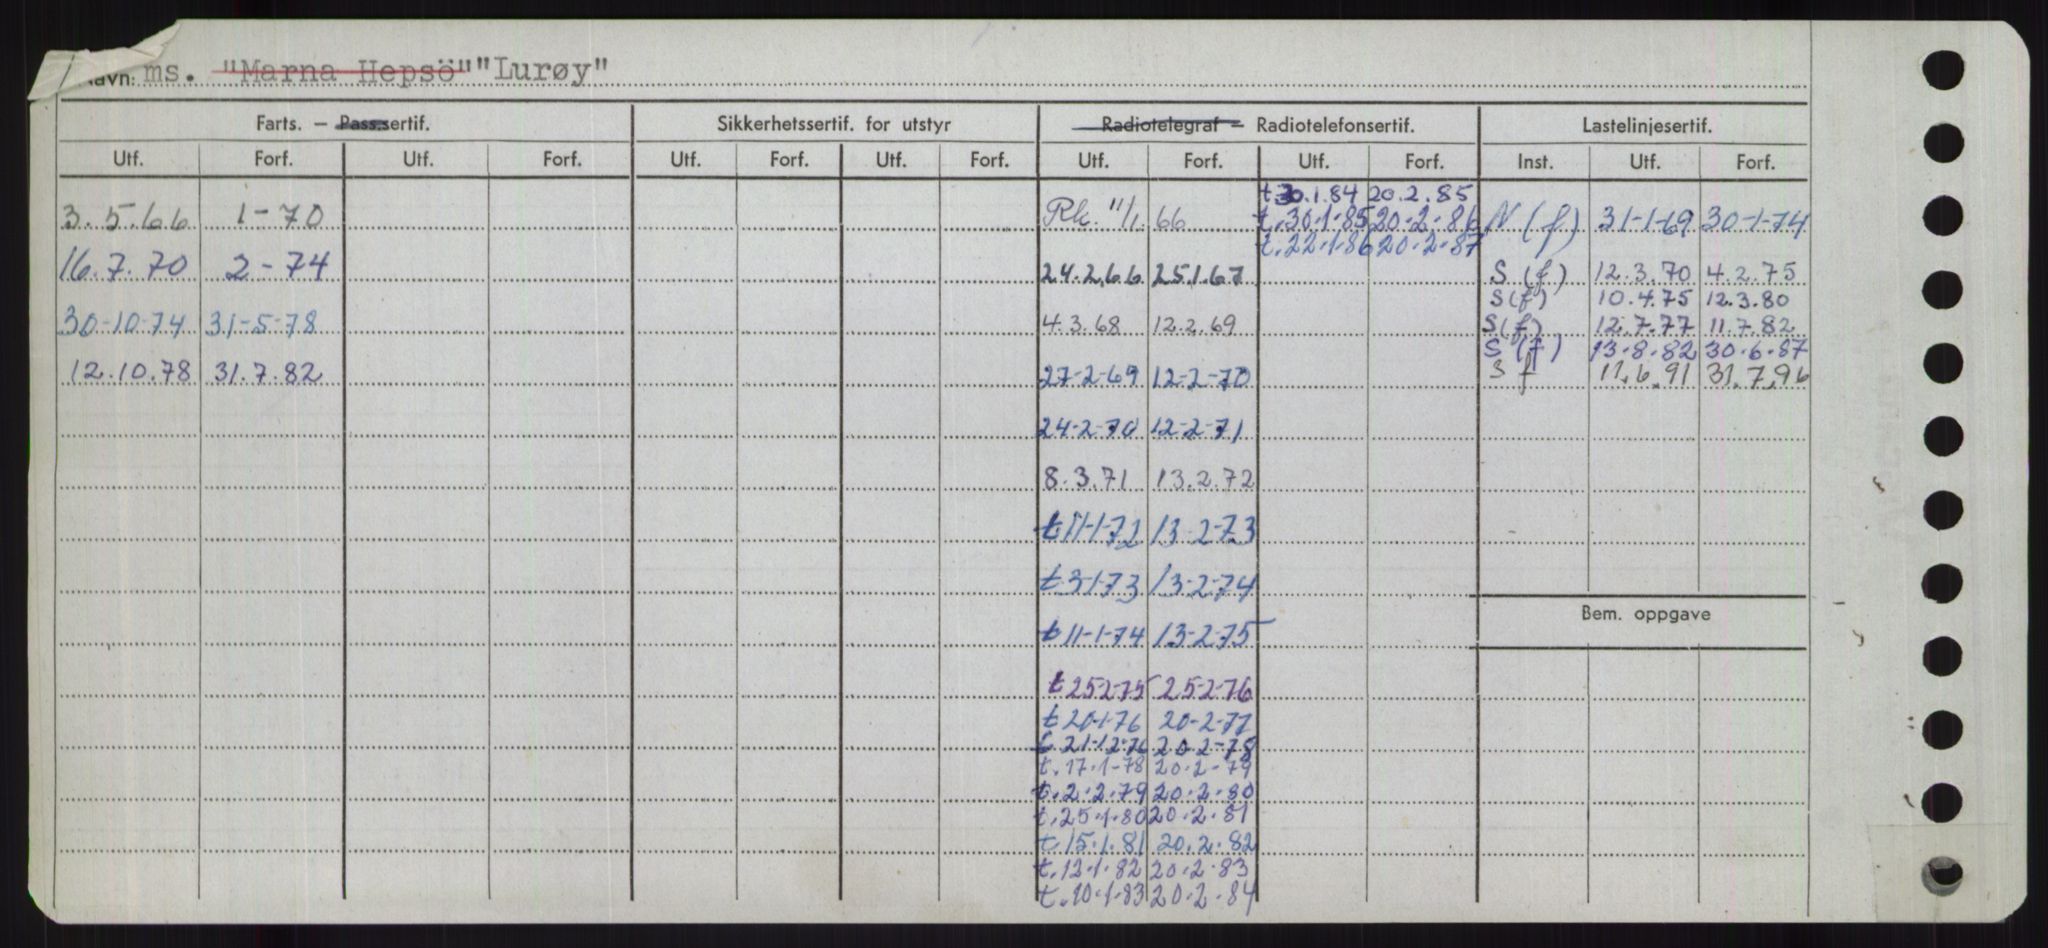 Navn: ms. "Marna Hepsö" "Lurøy"
Farts. — Pass.sertif. Sikkerhetssertif. for utstyr Radiotelegraf — Radiotelefonsertif. Lastelinjesertif.
Utf. Forf. Utf. Forf. Utf. Forf. Utf. Forf. Utf. Forf. Utf. Forf. Inst. Utf. Forf.
t.30.1.84 20.2.85
3.5.66 1-70 Rk. 11/1.66 t.30.1.85 20.2.86 N (f) 31-1-69 30-1-74
t.22.1.86 20.2.87
16.7.70 2-74 24.2.66 25.1.67 S (f) 12.3.70 4.2.75
S(f) 10.4.75 12.3.80
30-10-74 31-5-78 4.3.68 12.2.69 S(f) 12.7.77 11.7.82
S (f) 13.8.82 30.6.87
12.10.78 31.7.82 27-2-69 12-2-70 S f 11.6.91 31.7.96
24-2-70 12-2-71
8.3.71 13.2.72
t 11-1-72 13-2-73
t 3-1-73 13-2-74
Bem. oppgave
t 11-1-74 13-2-75
t 25-2-75 25-2-76
t 20-1-76 20-2-77
t. 21-12-76 20.2-78
t. 17.1-78 20.2-79
t. 2.2.79 20.2.80
t. 25.1.80 20.2.81
t. 15.1.81 20.2.82
t. 12.1.82 20.2.83
t. 10.1.83 20.2.84